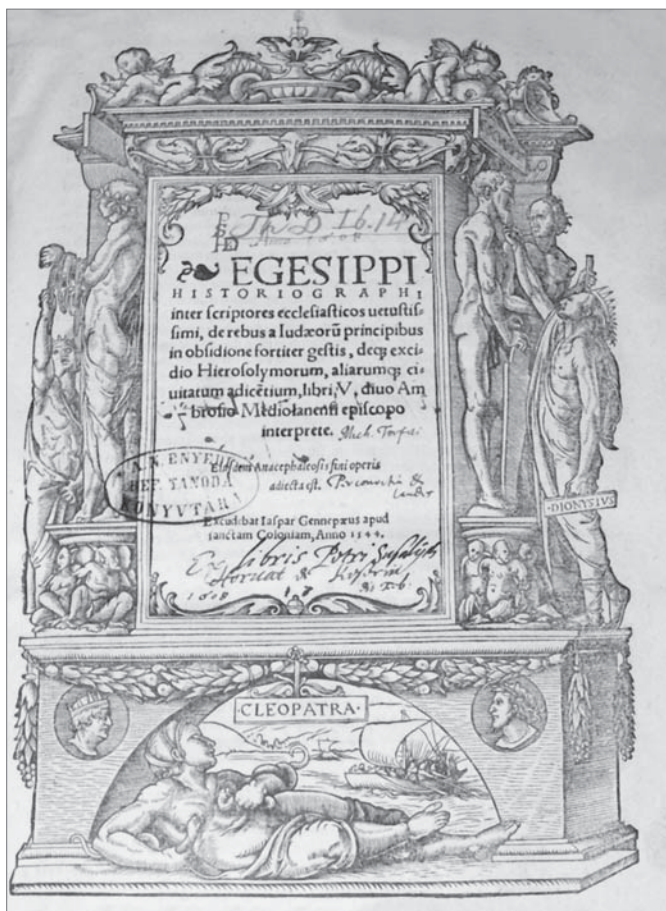 JWD 16.14
Anno 1608
EGESIPPI
HISTORIOGRAPHI
inter scriptores ecclesiasticos uetustis-
simi, de rebus a Iudæorũ principibus
in obsidione fortiter gestis, deqʒ exci-
dio Hierosolymorum, aliarumqʒ ci-
uitatum adiacẽtium, libri, V, diuo Am
brosio Mediolanensi episcopo
interprete.
Eiusdem Anacephaleosis fini operis
adiecta est.
Excudebat Iaspar Gennepæus apud
sanctam Coloniam, Anno 1544.
Ex libris Petri
1608 17
N. ENYEDI
REF. TANODA
KÖNYVTÁRA
·DIONYSIVS
·CLEOPATRA·